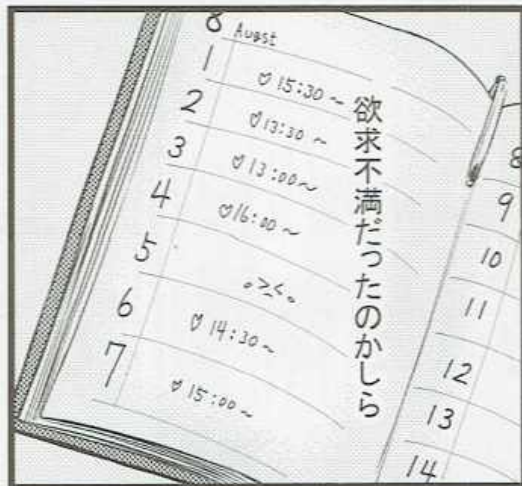 8 Augst
1 ♡15:30～
2 ♡13:30～
3 ♡13:00～
4 ♡16:00～
5 。>_<。
6 ♡14:30～
7 ♡15:00～
欲求不満だったのかしら
8
9
10
11
12
13
14